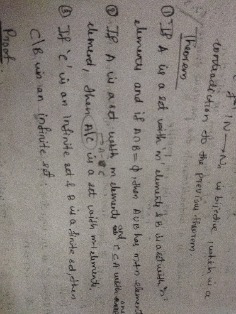 f: N → N is bijective (which is a
contradiction to the previous theorem
Theorem
① If A is a set with 'm' element, & B is a set with 'n'
elements and if A∩B = ϕ, then A∪B has m+n element
② If A is a set with m elements and C ⊂ A with one
element, then A\C is a set with m-1 elements
③ If 'C' is an infinite set & B is a finite set, then
C\B is an infinite set.
Proof